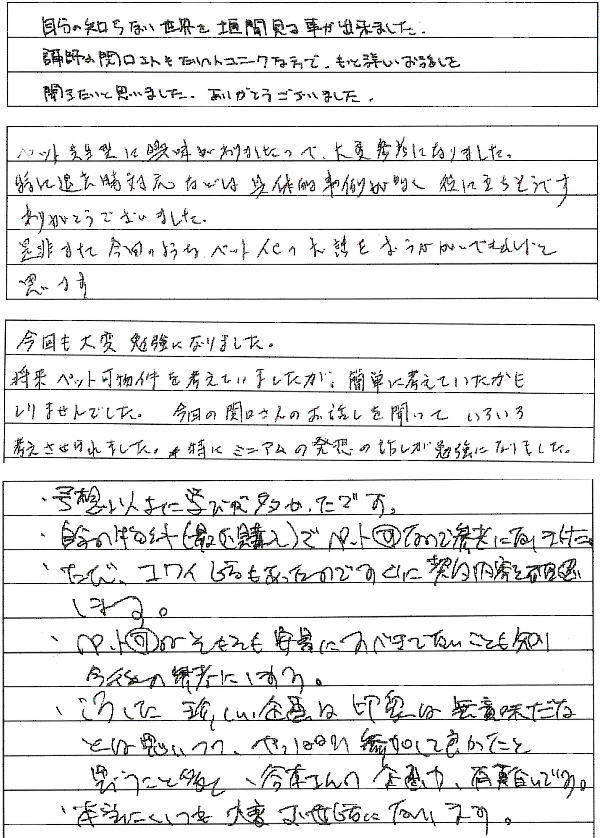 自分の知らない世界を垣間見る事が出来ました。
講師の関口さんもユニークな方で、もっと詳しいお話しを
聞きたいと思いました。ありがとうございました。
ペット共生型に興味がありましたので、大変参考になりました。
特に退去時対応などは具体的事例が多く役に立ちそうです
ありがとうございました。
是非また今回のようなペット化のお話をおうかがいできればと
思います
今回も大変勉強になりました。
将来ペット可物件を考えていましたが、簡単に考えていたかも
しりませんでした。今回の関口さんのお話しを聞って いろいろ
考えさせられました。特にミニアムの発想の話しが勉強になりました。
・予想以上に学びが多かったです。
・自分の物件(最近購入)でペット可なので参考になりました。
・ただ、コワイ話もあったのですぐに契約内容を再確認
します。
・ペット可がそもそも安易にすべきでないことも知り
今後の参考にします。
・こうした 珍しい企画は 印象は無意味だな
とは思いつつ、やっぱり参加して良かったと
思うこと多く、今本さんの企画力、有難いです。
・本当にいつも大変お世話になります。